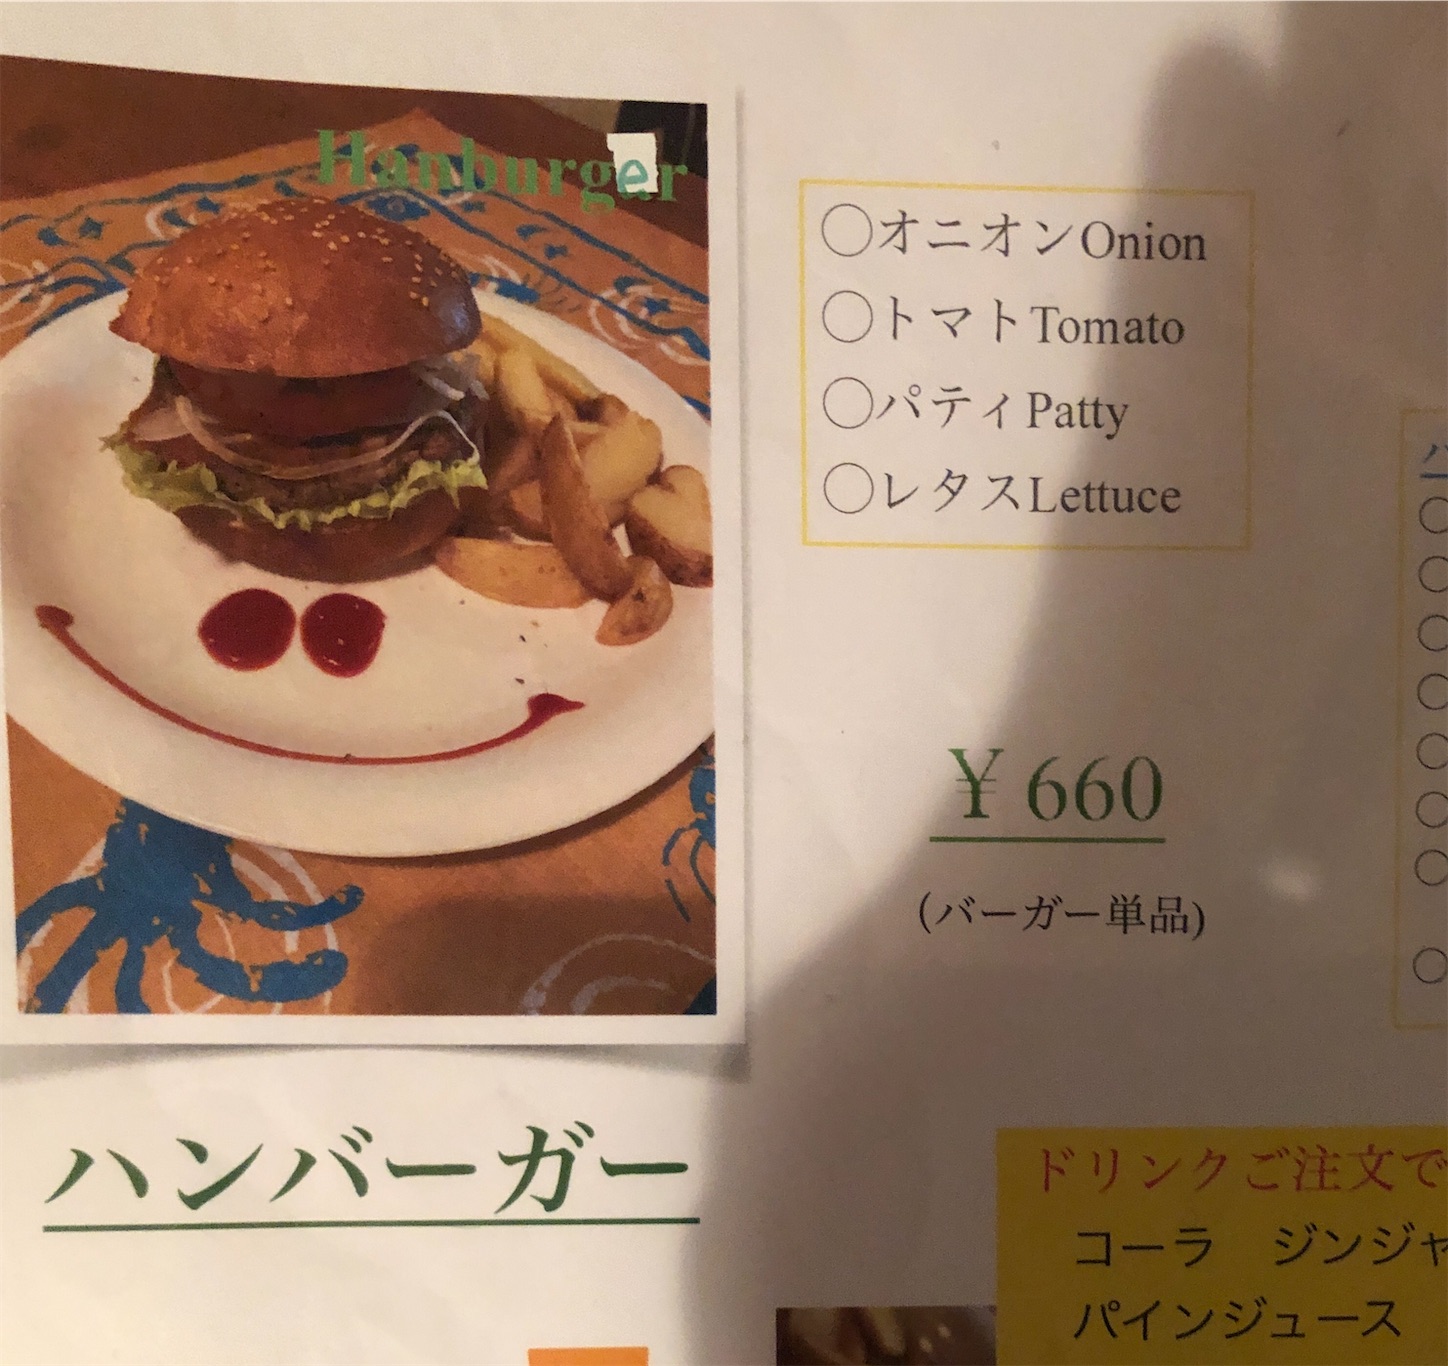 Hanburger
◯オニオンOnion
◯トマトTomato
◯パティPatty
◯レタスLettuce
¥660
(バーガー単品)
ハンバーガー
ドリンクご注文で
コーラ ジンジャ
パインジュース